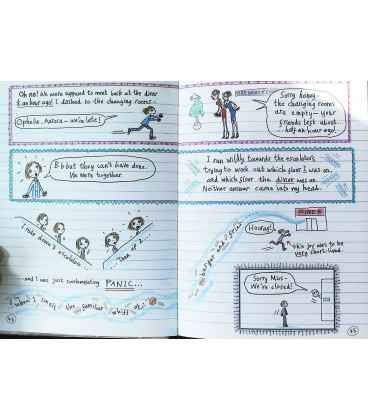 Oh no! We were supposed to meet back at the diner
½ an hour ago! I dashed to the changing rooms—
Ophelia, Aurora - we're late!
B-b-but they can't have done.
We were together
I ride down 3
escalators
Then up 2...
and I was just contemplating PANIC...
when I smell the familiar whiff of
44
Sorry honey -
the changing rooms
are empty - your
friends left about
half an hour ago!
I run wildly towards the escalators
trying to work out which floor I was on
and which floor the diner was on.
Neither answer came into my head.
burger and fries
Hooray!
This joy was to be
very short-lived.
Sorry Miss -
We're closed!
45